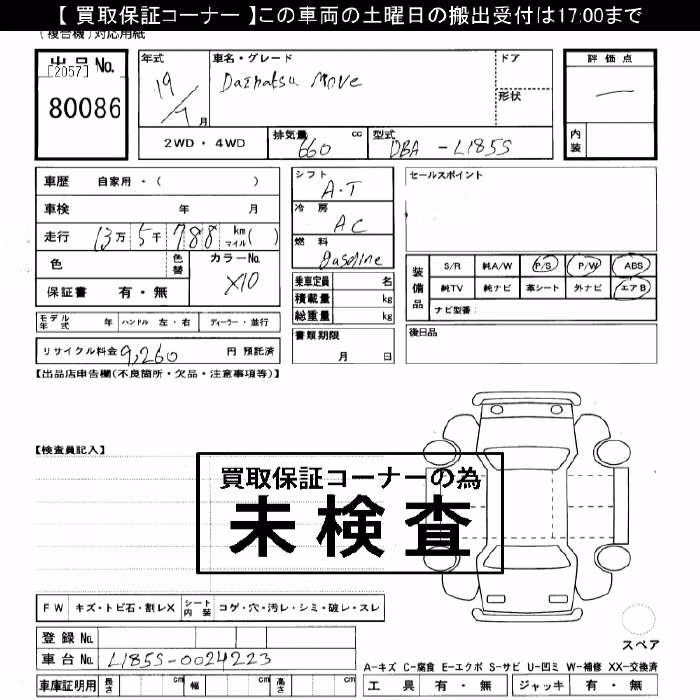 【 買取保証コーナー 】この車両の土曜日の搬出受付は17:00まで
(複合機)対応用紙
出品 No.
[2057]
80086
年式
19/9月
車名・グレード
Daihatsu Move
ドア
形状
評価点
—
内装
2WD・4WD
排気量 660 cc
型式 DBA-L185S
車歴 自家用・( )
車検 年 月
走行 13万5千788 km マイル( )
色 色替
カラーNo. X10
保証書 有・無
シフト
A.T
冷房
AC
燃料
Gasoline
乗車定員 名
積載量 kg
総重量 kg
セールスポイント
装備品
S/R 純A/W P/S P/W ABS
純TV 純ナビ 革シート 外ナビ エアB
ナビ型番:
モデル年式 年 ハンドル 左・右 ディーラー・並行
書類期限
月 日
後日品
リサイクル料金 9,260 円 預託済
【出品店申告欄(不良箇所・欠品・注意事項等)】
【検査員記入】
買取保証コーナーの為
未検査
FW キズ・トビ石・割レX シート内装 コゲ・穴・汚レ・シミ・破レ・スレ
登録 No.
車台 No. L185S-0024223
車庫証明用 長さ cm 幅 cm 高さ cm
スペア
A-キズ C-腐食 E-エクボ S-サビ U-凹ミ W-補修 XX-交換済
工具 有・無 ジャッキ 有・無